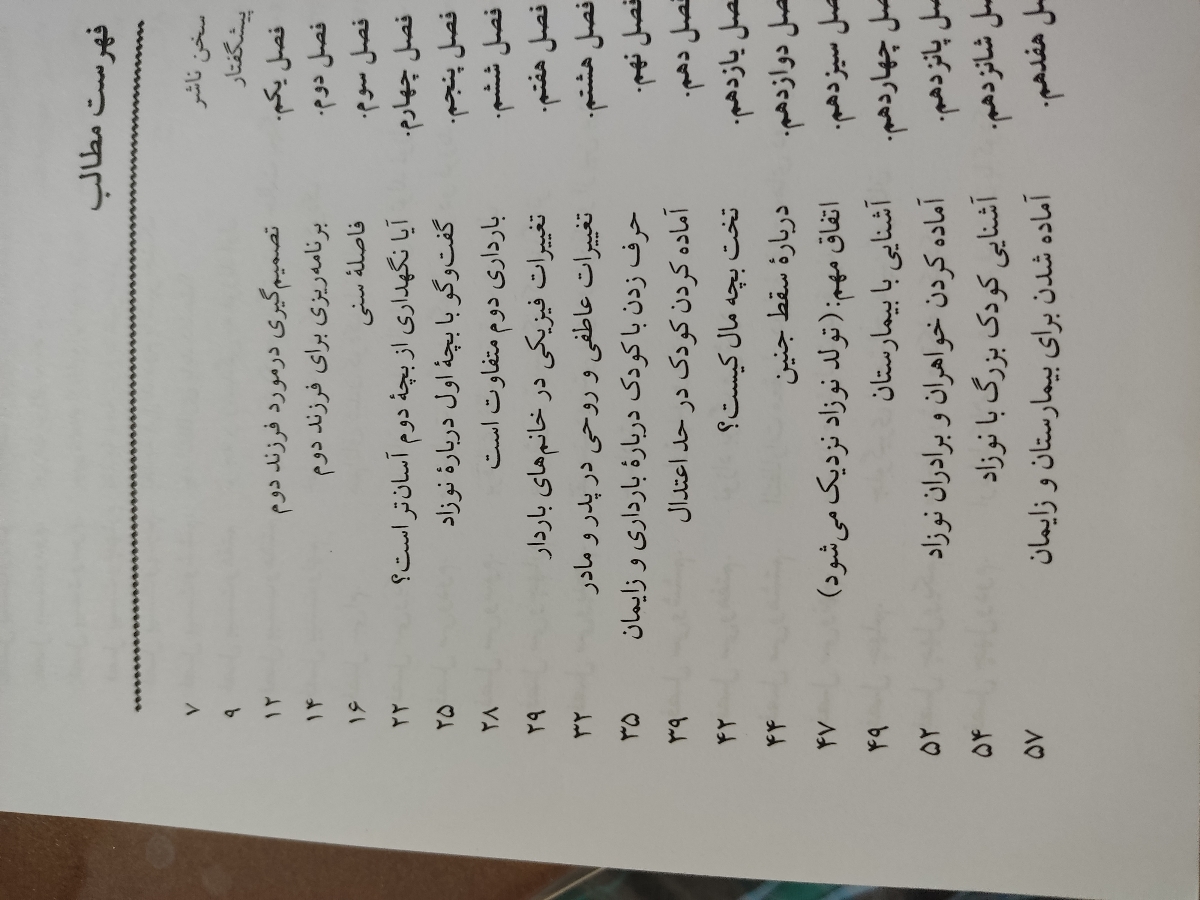 فهرست مطالب
سخن ناشر ۷
پیشگفتار ۹
فصل یکم. تصمیم‌گیری درمورد فرزند دوم ۱۲
فصل دوم. برنامه‌ریزی برای فرزند دوم ۱۴
فصل سوم. فاصلهٔ سنی ۱۶
فصل چهارم. آیا نگهداری از بچهٔ دوم آسان‌تر است؟ ۲۲
فصل پنجم. گفت‌وگو با بچهٔ اول دربارهٔ نوزاد ۲۵
فصل ششم. بارداری دوم متفاوت است ۲۸
فصل هفتم. تغییرات فیزیکی در خانم‌های باردار ۲۹
فصل هشتم. تغییرات عاطفی و روحی در پدر و مادر ۳۲
فصل نهم. حرف زدن با کودک دربارهٔ بارداری و زایمان ۳۵
فصل دهم. آماده کردن کودک در حد اعتدال ۳۹
صل یازدهم. تخت بچه مال کیست؟ ۴۲
صل دوازدهم. دربارهٔ سقط جنین ۴۴
صل سیزدهم. اتفاق مهم: (تولد نوزاد نزدیک می‌شود) ۴۷
صل چهاردهم. آشنایی با بیمارستان ۴۹
صل پانزدهم. آماده کردن خواهران و برادران نوزاد ۵۲
صل شانزدهم. آشنایی کودک بزرگ با نوزاد ۵۴
صل هفدهم. آماده شدن برای بیمارستان و زایمان ۵۷